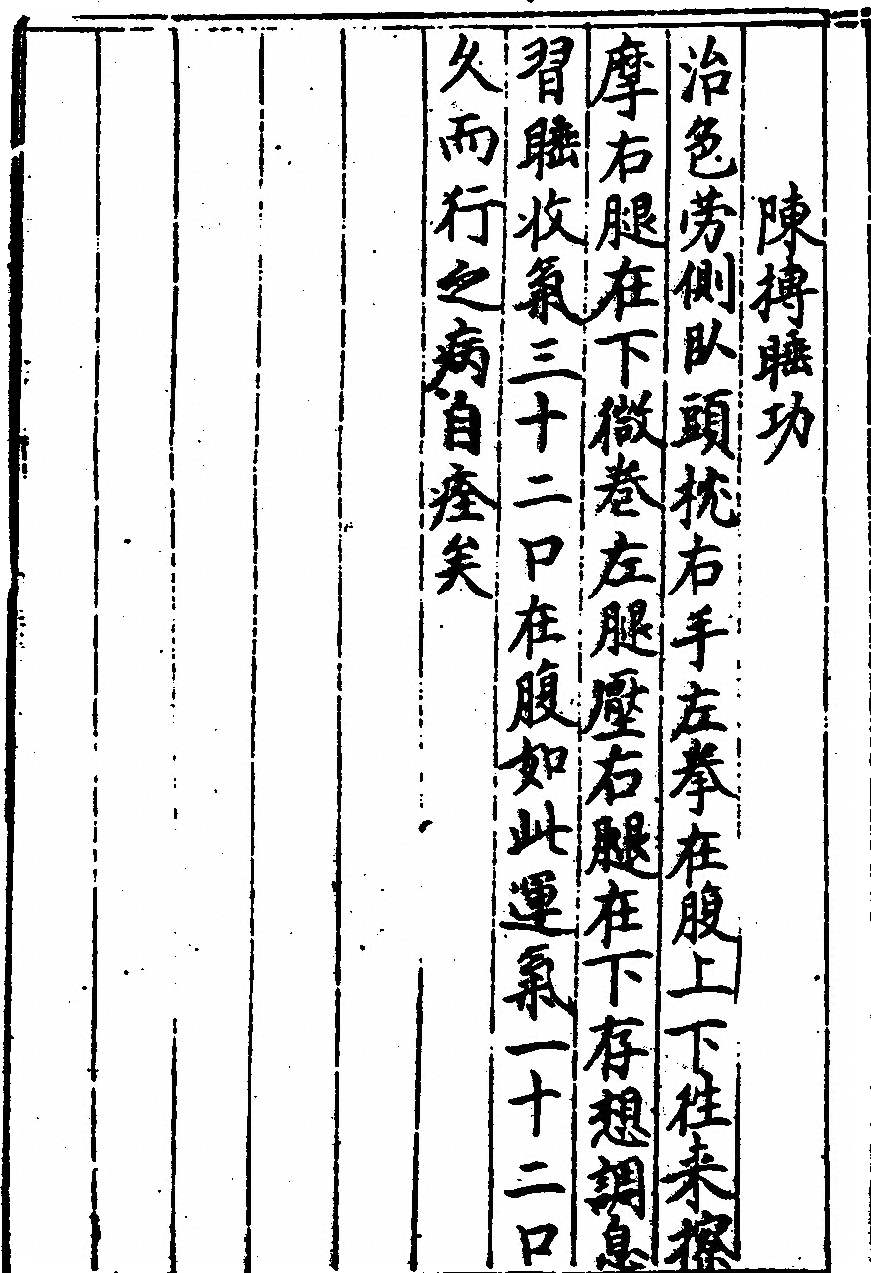 陳摶睡功
治色劳側卧頭枕右手左拳在腹上下徃来擦
摩右腿在下微卷左腿壓右腿在下存想調息
習睡收氣三十二口在腹如此運氣一十二口
久而行之病自痊矣